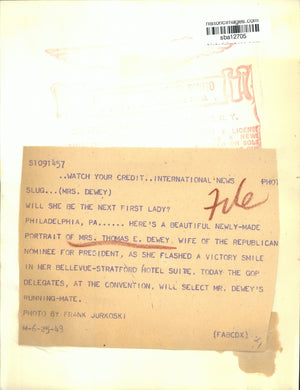 historicimages.com
sba12705
LICENSE
S1091457
..WATCH YOUR CREDIT..INTERNATIONAL NEWS PHOT
SLUG...(MRS. DEWEY)
File
WILL SHE BE THE NEXT FIRST LADY?
PHILADELPHIA, PA..... HERE'S A BEAUTIFUL NEWLY-MADE
PORTRAIT OF MRS. THOMAS E. DEWEY, WIFE OF THE REPUBLICAN
NOMINEE FOR PRESIDENT, AS SHE FLASHED A VICTORY SMILE
IN HER BELLEVUE-STRATFORD HOTEL SUITE. TODAY THE GOP
DELEGATES, AT THE CONVENTION, WILL SELECT MR. DEWEY'S
RUNNING-MATE.
PHOTO BY FRANK JURKOSKI
M-6-25-48 (FABCDX)